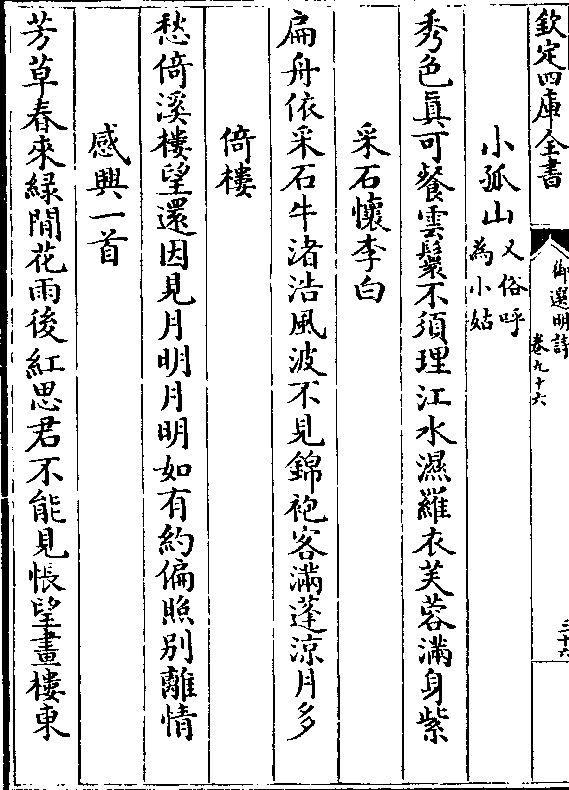 欽定四庫全書
御選明詩
卷九十六
三十六
小孤山又俗呼為小姑
秀色真可餐雲鬟不須理江水濕羅衣芙蓉滿身紫
采石懷李白
扁舟依采石牛渚浩風波不見錦袍客滿蓬涼月多
倚樓
愁倚溪樓望還因見月明月明如有約偏照别離情
感興一首
芳草春來緑閒花雨後紅思君不能見悵望畫樓東